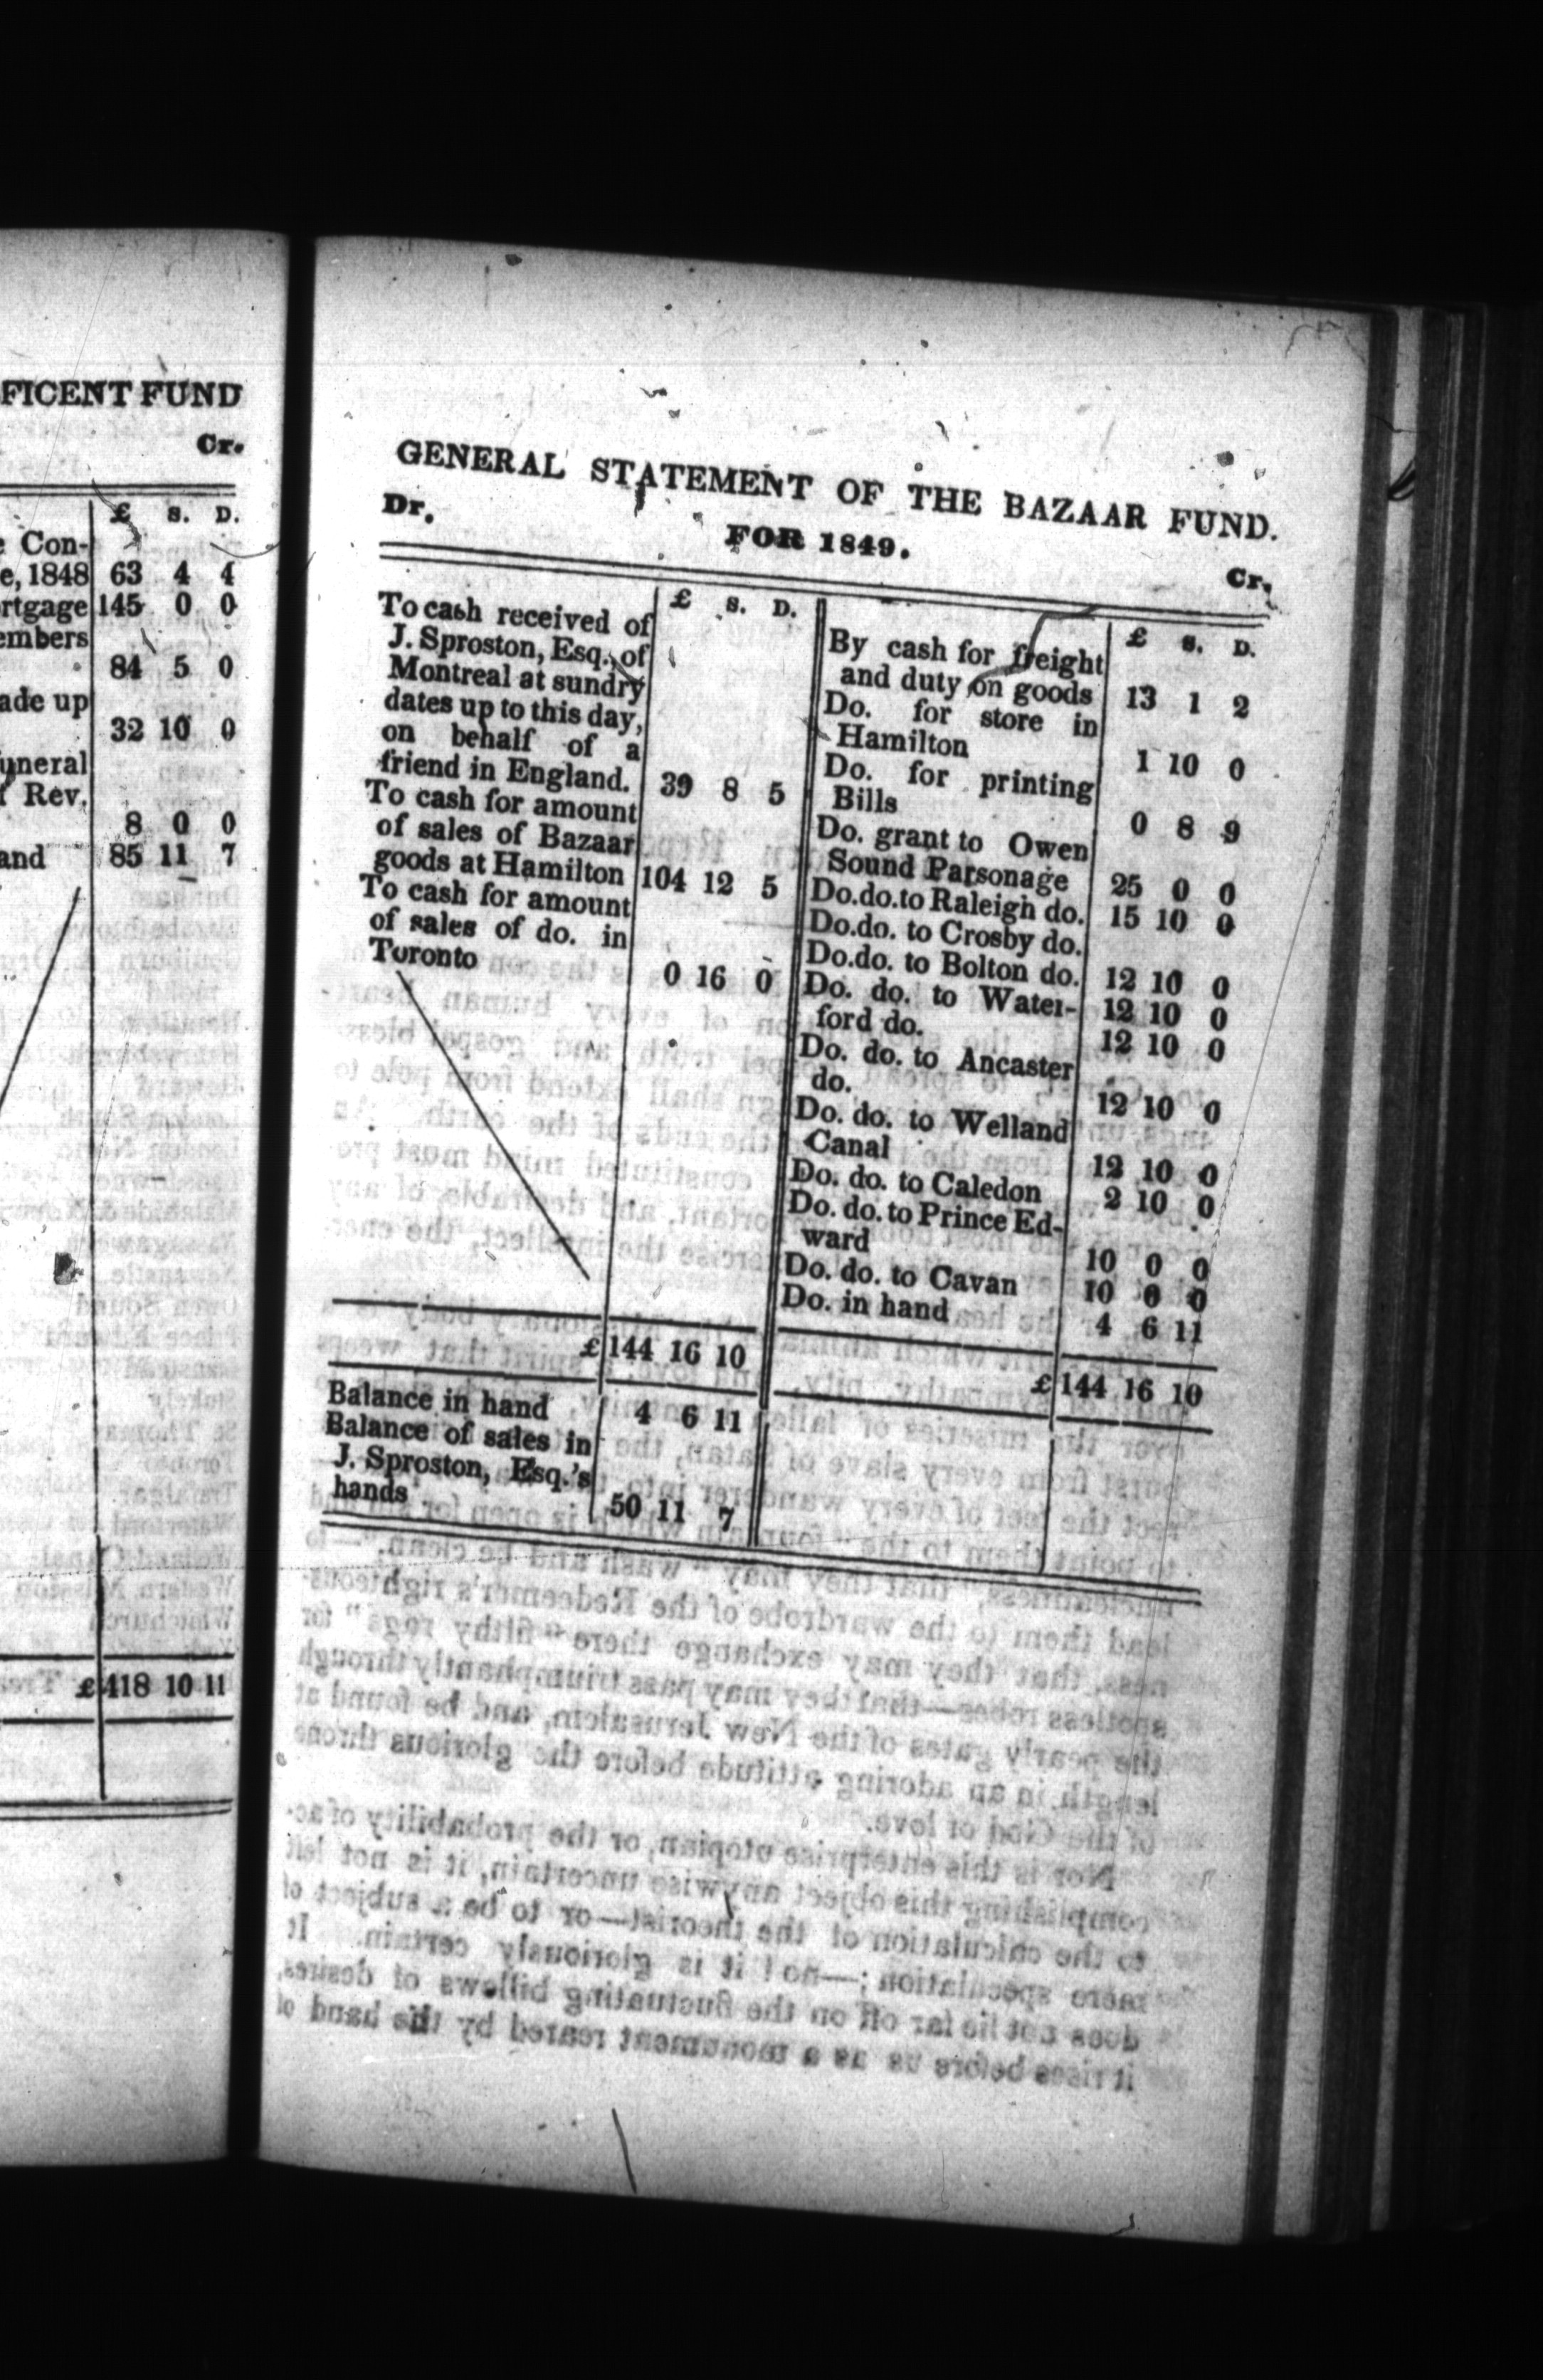 FICENT FUND
Cr.
£ S. D.
e Con-
e, 1848 63 4 4
rtgage 145 0 0
embers
84 5 0
ade up
32 10 0
uneral
Rev.
8 0 0
and 85 11 7
£418 10 11
GENERAL STATEMENT OF THE BAZAAR FUND.
FOR 1849.
Dr.
Cr.
£ S. D.
To cash received of
J. Sproston, Esq., of
Montreal at sundry
dates up to this day,
on behalf of a
friend in England. 39 8 5
To cash for amount
of sales of Bazaar
goods at Hamilton 104 12 5
To cash for amount
of sales of do. in
Toronto 0 16 0
£144 16 10
Balance in hand 4 6 11
Balance of sales in
J. Sproston, Esq.'s
hands 50 11 7
£ S. D.
By cash for freight
and duty on goods 13 1 2
Do. for store in
Hamilton 1 10 0
Do. for printing
Bills 0 8 9
Do. grant to Owen
Sound Parsonage 25 0 0
Do.do.to Raleigh do. 15 10 0
Do.do. to Crosby do. 12 10 0
Do.do. to Bolton do. 12 10 0
Do. do. to Water-
ford do. 12 10 0
Do. do. to Ancaster
do. 12 10 0
Do. do. to Welland
Canal 12 10 0
Do. do. to Caledon 2 10 0
Do. do. to Prince Ed-
ward 10 0 0
Do. do. to Cavan 10 0 0
Do. in hand 4 6 11
£144 16 10